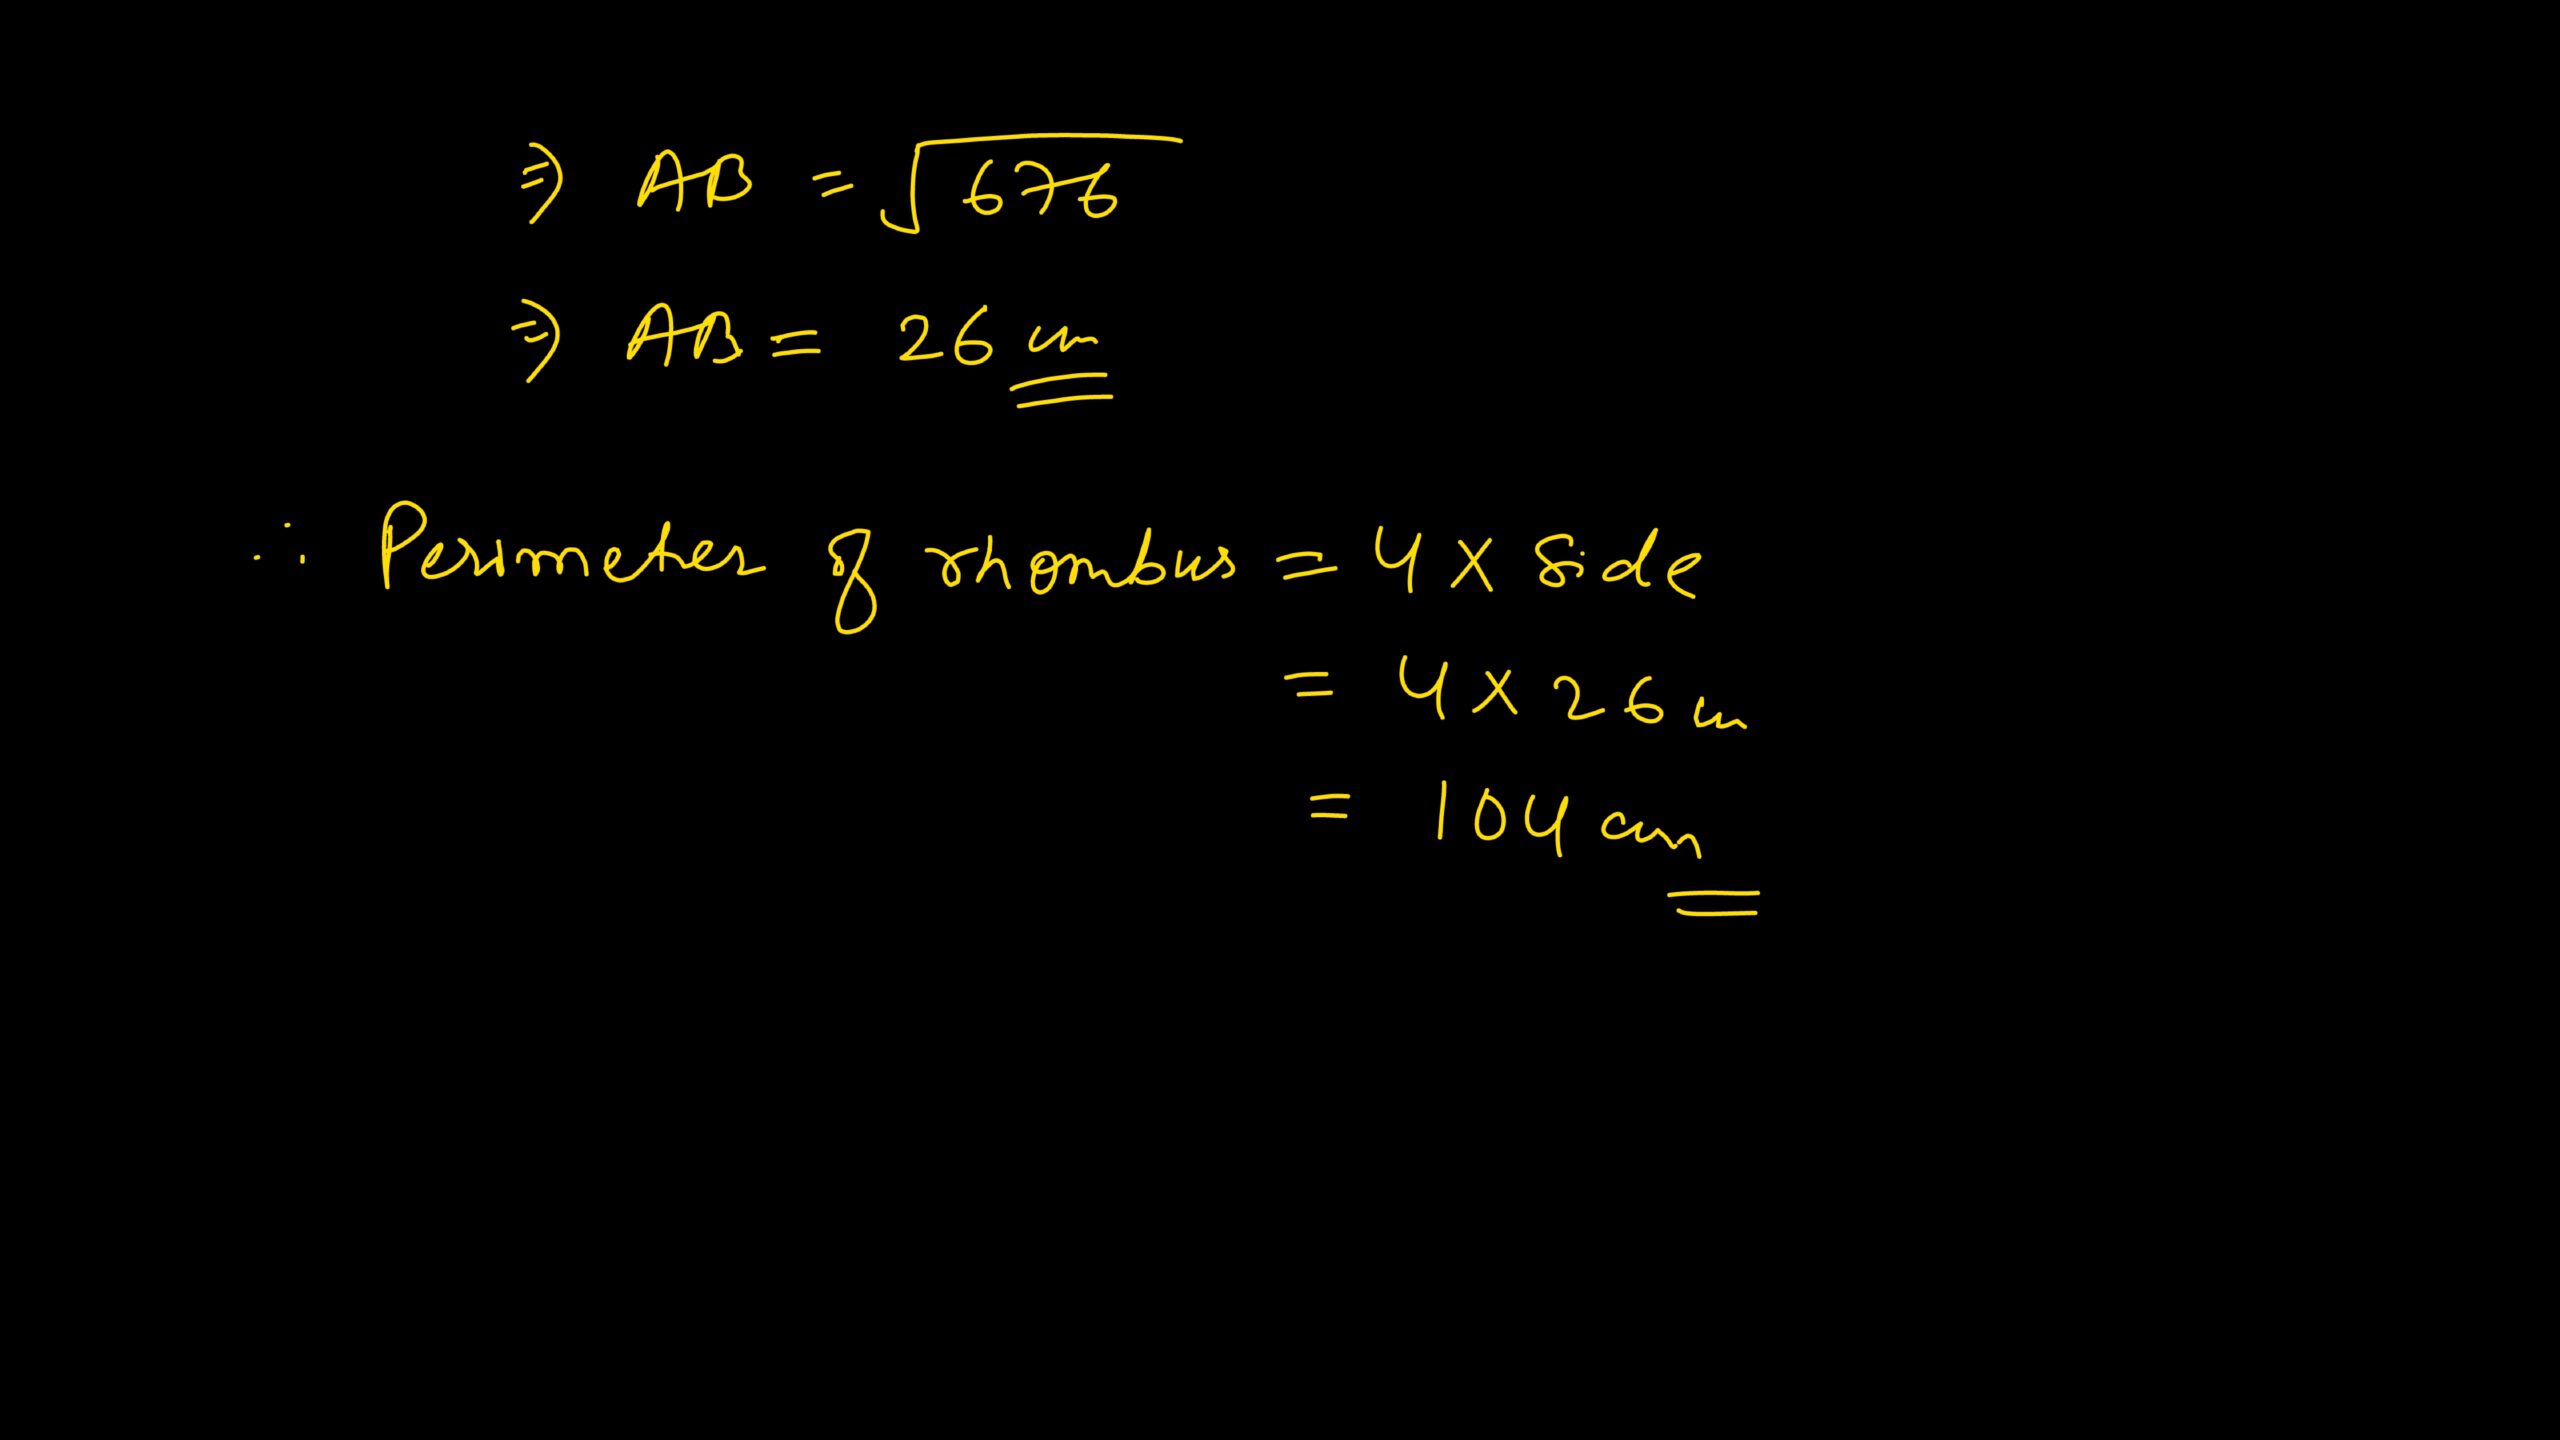 ⇒ AB = √676
⇒ AB = 26 cm
∴ Perimeter of rhombus = 4 × Side
= 4 × 26 cm
= 104 cm